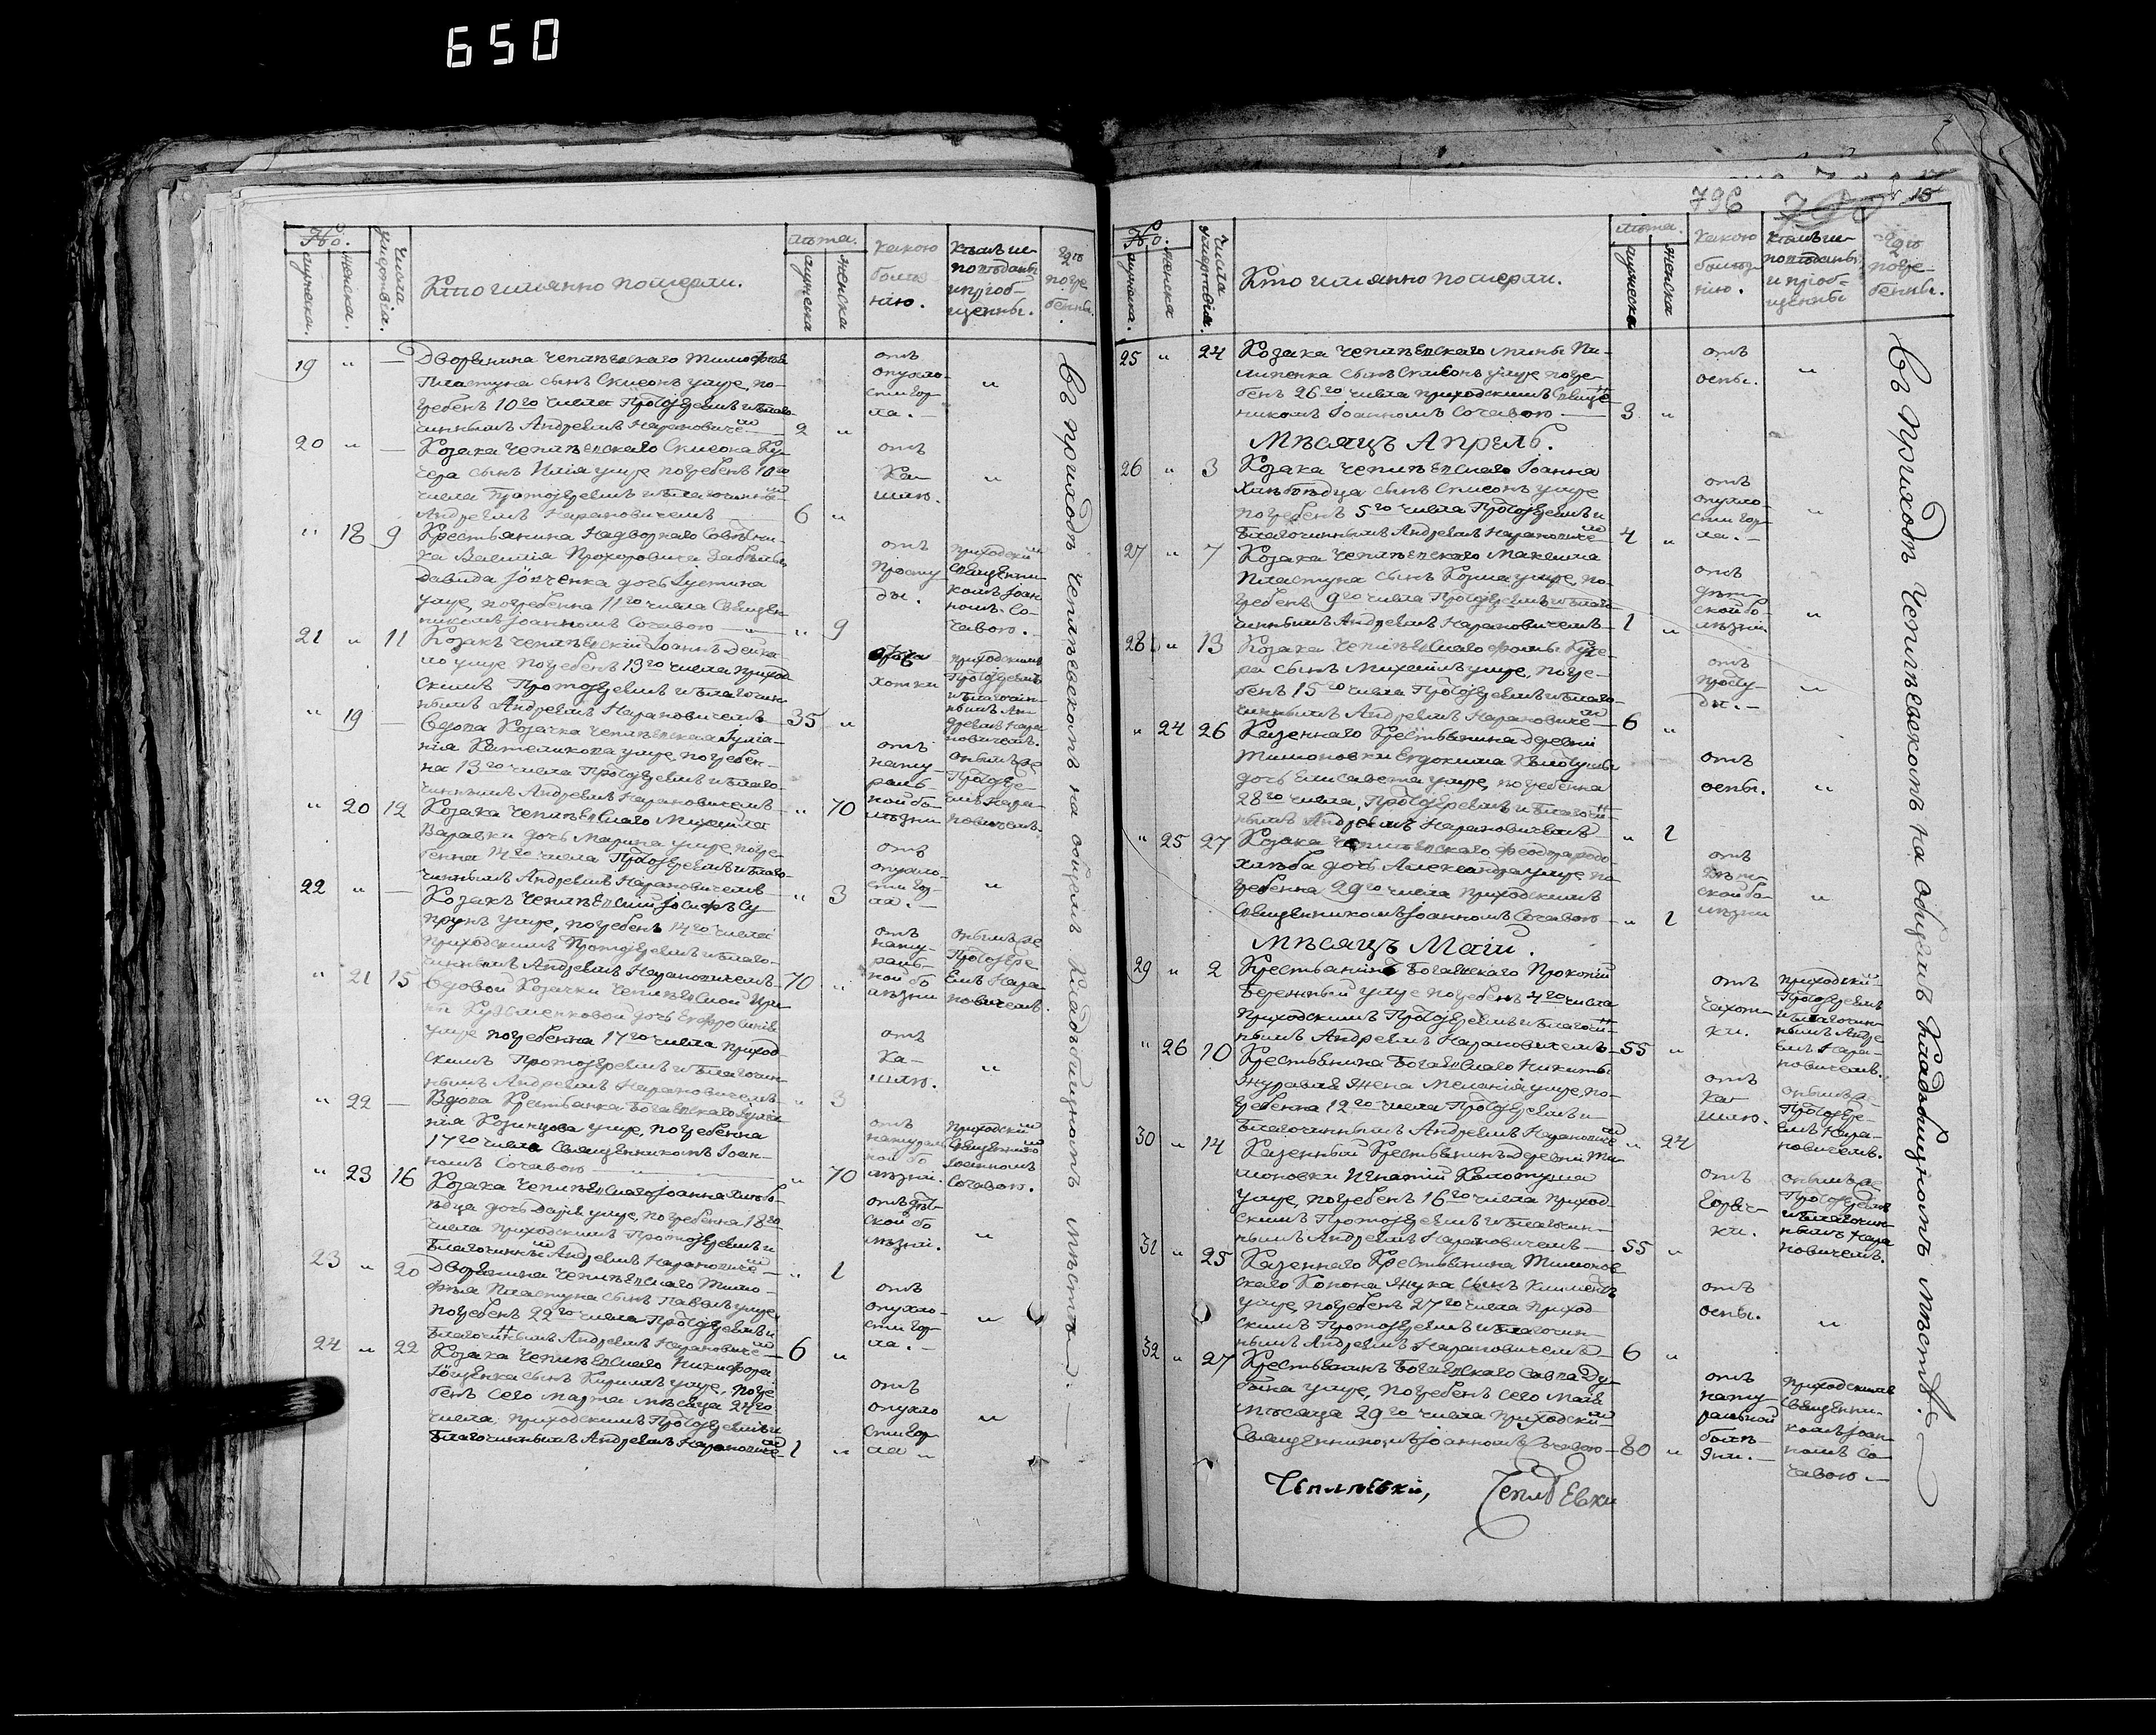 650
No.
мужеска.
женска.
Числа
умертвія.
Кто имянно померли.
лѣта.
мужеска
женска
какою
болѣз
нію.
кѣмъ ис-
поведаны
и пріоб-
щенны.
Где
погре
бенны.
19 " — Дворянина Чепилѣвскаго Тимофѣя
Пластуна сынъ Симеонъ умре, по-
гребенъ 10го числа Протоіереемъ и благо-
чиннымъ Андреемъ Нарановичемъ — 2 "
отъ
опухло-
сти гор
ла. —
"
20 " — Козака Чепилѣвскаго Симеона Ку-
чера сынъ Илія умре погребенъ 10го
числа Протоіереемъ и благочиннымъ
Андреемъ Нарановичемъ — 6 "
отъ
Ка-
шлю.
"
" 18 9 Крестьянина Надворнаго Совѣтни-
ка Василія Прохоровича
Давида дочь Іустина
умре, погребенна 11го числа Священ-
никомъ Іоанномъ Сочавою — " 9
отъ
просту
ды.
приходскимъ
Священни-
комъ Іоан-
номъ Со-
чавою.
21 " 11 Козакъ Чепилѣвскій Іоаннъ Дейка-
ло умре погребенъ 13го числа приход
скимъ Протоіереемъ и благочин-
нымъ Андреемъ Нарановичемъ — 35 "
хотки
приходскимъ
Протоіереемъ
и благочин-
нымъ Ан-
дреемъ Нара
новичемъ.
" 19 — Вдова Козачка Чепилѣвская Іуліа-
нія умре, погребен-
на 13го числа Протоіереемъ и благо-
чиннымъ Андреемъ Нарановичемъ — " 70
отъ
нату-
раль-
ной бо-
лѣзни
онымъ же
Протоіере-
емъ Нара-
новичемъ.
" 20 12 Козака Чепилѣвскаго Михаила
Варавки дочь Марина умре, погре-
бенна 14го числа Протоіереемъ и благо-
чиннымъ Андреемъ Нарановичемъ — " 3
отъ
опухло-
сти гор-
ла. —
"
22 " — Козакъ Чепилѣвскій Іосифъ Су-
прунъ умре, погребенъ 14го числа
приходскимъ Протоіереемъ и благо-
чиннымъ Андреемъ Нарановичемъ — 70 "
отъ
нату-
раль-
ной бо
лѣзни
онымъ же
Протоіере
емъ Нара
новичемъ.
" 21 15 Вдовой Козачки Чепилѣвской Ири-
ны Кузьменковой дочь Евфросинія
умре погребенна 17го числа приход
скимъ Протоіереемъ и благочин-
нымъ Андреемъ Нарановичемъ — " 3
отъ
Ка-
шлю.
"
" 22 — Вдова Крестьянка Богаевскаго Іуліа-
нія Козинцова умре, погребенна
17го числа Священникомъ Іоан-
номъ Сочавою — " 70
отъ
натураль
ной бо
лѣзни.
приходскимъ
Священникомъ
Іоанномъ
Сочавою.
" 23 16 Козака Чепилѣвскаго Іоанна Хлѣбо-
ѣдца дочь Дарія умре, погребенна 18го
числа приходскимъ Протоіереемъ и
благочиннымъ Андреемъ Нарановичемъ — " 1
отъ дѣт-
ской бо
лѣзни.
"
23 " 20 Дворянина Чепилѣвскаго Тимо-
фѣя Пластуна сынъ Павелъ умре,
погребенъ 22го числа Протоіереемъ и
благочиннымъ Андреемъ Нарановичемъ — 6 "
отъ
опухло-
сти гор-
ла. —
"
24 " 22 Козака Чепилѣвскаго Никифора
сынъ Кириллъ умре, погре
бенъ сего марта мѣсяца 24го
числа, приходскимъ Протоіереемъ и
благочиннымъ Андреемъ Нарановичемъ — 1 "
отъ
опухло
сти гор
ла "
"
Въ приходѣ Чепилѣвскомъ на общемъ кладбищномъ мѣстѣ. —
796 15
No.
мужеска.
женска
Числа
умертвія.
Кто имянно померли.
лѣта.
мужеска
женска
какою
болѣз-
нію.
кѣмъ ис-
поведаны
и пріоб-
щенны
Где
погре-
бенны.
25 " 24 Козака Чепилѣвскаго Мины Пи-
липенка сынъ Симеонъ умре погре-
бенъ 26го числа приходскимъ Священ
никомъ Іоанномъ Сочавою — 3 "
отъ
оспы.
"
Мѣсяцъ Апрѣль.
26 " 3 Козака Чепилѣвскаго Іоанна
Хлѣбоѣдца сынъ Симеонъ умре
погребенъ 5го числа Протоіереемъ и
благочиннымъ Андреемъ Нарановичемъ — 4 "
отъ
опухло-
сти гор-
ла. —
"
27 " 7 Козака Чепилѣвскаго Максима
Пластуна сынъ Козма умре, по-
гребенъ 9го числа Протоіереемъ и благо-
чиннымъ Андреемъ Нарановичемъ — 1 "
отъ
дѣт-
ской бо-
лѣзни
"
28 " 13 Козака Чепилѣвскаго Фомы Куче-
ра сынъ Михаилъ умре, погре-
бенъ 15го числа Протоіереемъ и благо-
чиннымъ Андреемъ Нарановичемъ — 6 "
отъ
просту-
ды. —
"
" 24 26 Казеннаго Крестьянина деревни
Тимоновки Евдокима Колотуши
дочь Елисавета умре, погребенна
28го числа, Протоіереемъ и благочин
нымъ Андреемъ Нарановичемъ — " 1
отъ
оспы.
"
" 25 27 Козака Чепилѣвскаго Феодора
дочь Александра умре по-
гребенна 29го числа приходскимъ
Священникомъ Іоанномъ Сочавою — " 1
отъ
дѣт-
ской бо-
лѣзни
"
Мѣсяцъ Маій.
29 " 2 Крестьянинъ Богаевскаго Прокопій
Бережный умре погребенъ 4го числа
приходскимъ Протоіереемъ и благочин-
нымъ Андреемъ Нарановичемъ — 55 "
отъ
чахот-
ки.
приходскимъ
Протоіереемъ
и благочин-
нымъ Андре
емъ Нара-
новичемъ.
" 26 10 Крестьянина Богаевскаго Никиты
Журавля жена Меланія умре, по-
гребенна 12го числа Протоіереемъ и
благочиннымъ Андреемъ Нарановичемъ — " 24
отъ
Ка-
шлю.
онымъ же
Протоіере-
емъ Нара-
новичемъ.
30 " 14 Казенный Крестьянинъ деревни Ти-
моновки Игнатій Колотуша
умре, погребенъ 16го числа приход-
скимъ Протоіереемъ и благочин-
нымъ Андреемъ Нарановичемъ — 55 "
отъ
горяч-
ки.
онымъ же
Протоіереемъ
и благочин-
нымъ Нара
новичемъ.
31 " 25 Казеннаго Крестьянина Тимонов
скаго Конона Жука сынъ Климентъ
умре, погребенъ 27го числа приход-
скимъ Протоіереемъ и благочин-
нымъ Андреемъ Нарановичемъ — 6 "
отъ
оспы.
"
32 " 27 Крестьянинъ Богаевскаго Савва Ду-
бина умре, погребенъ сего Маія
мѣсяца 29го числа приходскимъ
Священникомъ Іоанномъ Сочавою — 80 "
отъ
нату
ральной
болѣ-
зни. —
приходскимъ
Священни-
комъ Іоан-
номъ Со-
чавою. —
Въ приходѣ Чепилѣвскомъ на общемъ кладбищномъ мѣстѣ.
Чепилѣвки, Чепилѣвки